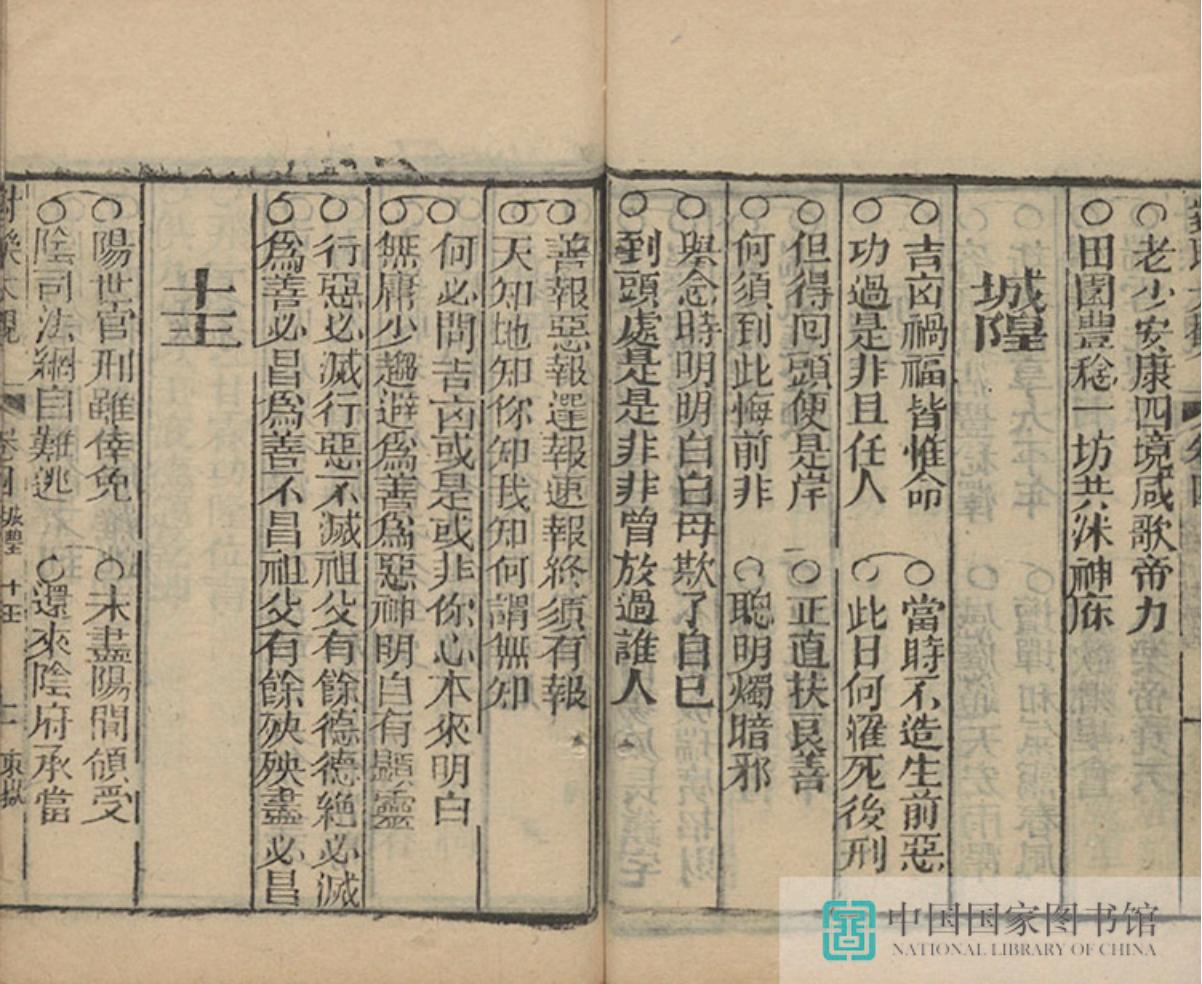 老少安康四境咸歌帝力
田園豐稔一坊共沐神庥
城隍
吉凶禍福皆惟命
當時不造生前惡
功過是非且任人
此日何罹死後刑
但得回頭便是岸
正直扶良善
何須到此悔前非
聰明燭暗邪
舉念時明明白白毋欺了自已
到頭處是是非非曾放過誰人
善報惡報遲報速報終須有報
天知地知你知我知何謂無知
何必問吉凶或是或非你心本來明白
無庸少趨避爲善爲惡神明自有顯靈
行惡必滅行惡不滅祖父有餘德德絶必滅
爲善必昌爲善不昌祖父有餘殃殃盡必昌
十王
陽世官刑雖倖免
未盡陽間領受
陰司法網自難逃
還來陰府承當
對聯大觀
卷四
城隍
十王
東嶽
中国国家图书馆
NATIONAL LIBRARY OF CHINA